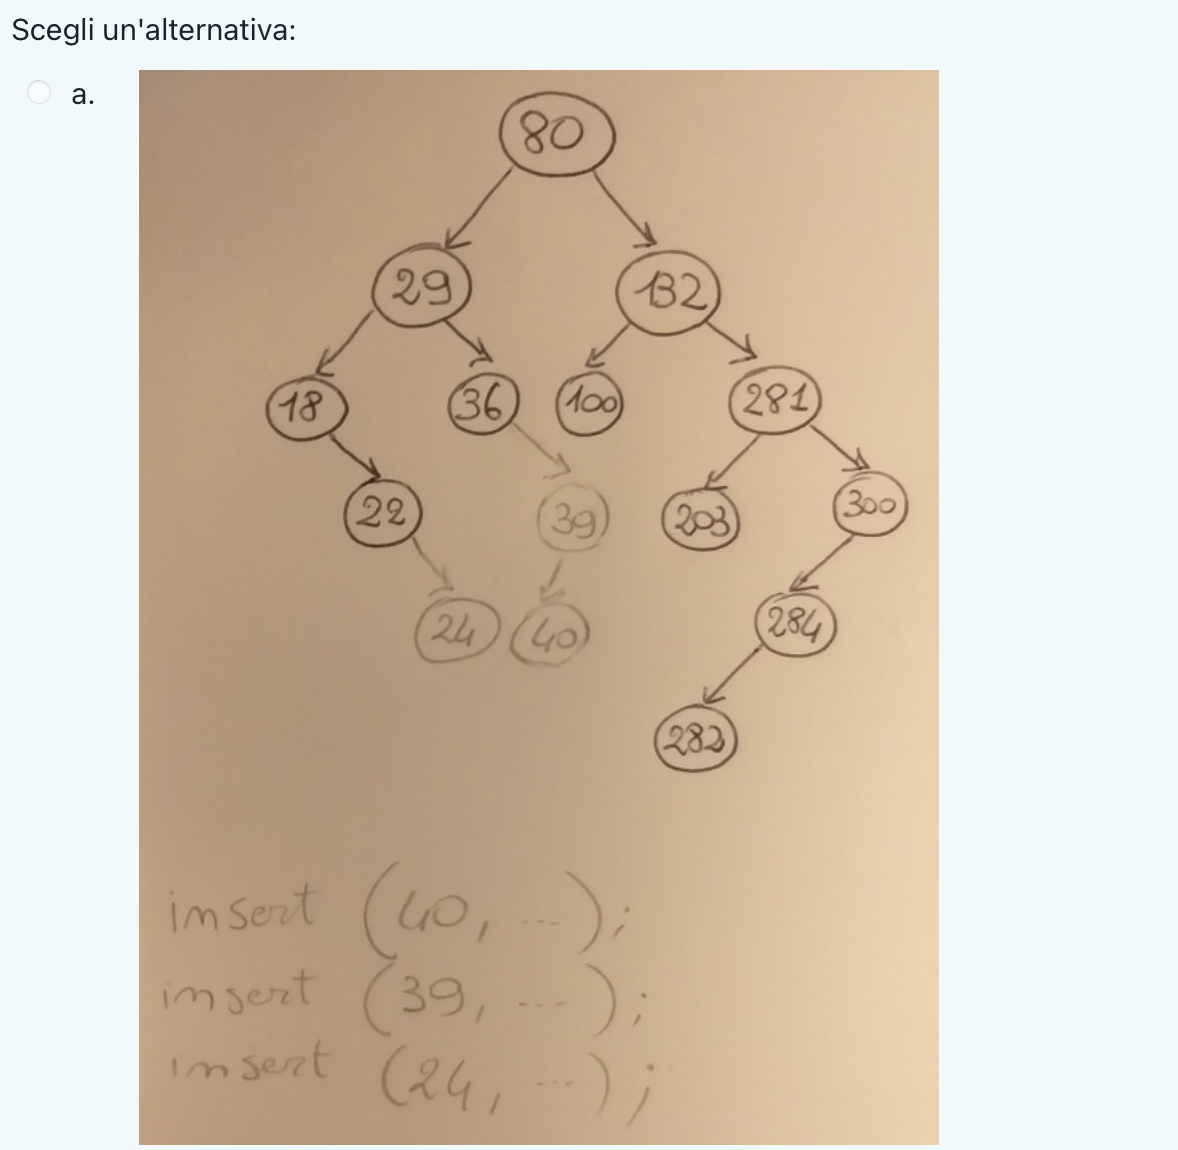 Scegli un'alternativa:
a.
80
29 132
18 36 100 281
22 39 203 300
24 40 284
282
insert (40, ...);
insert (39, ...);
insert (24, ...);